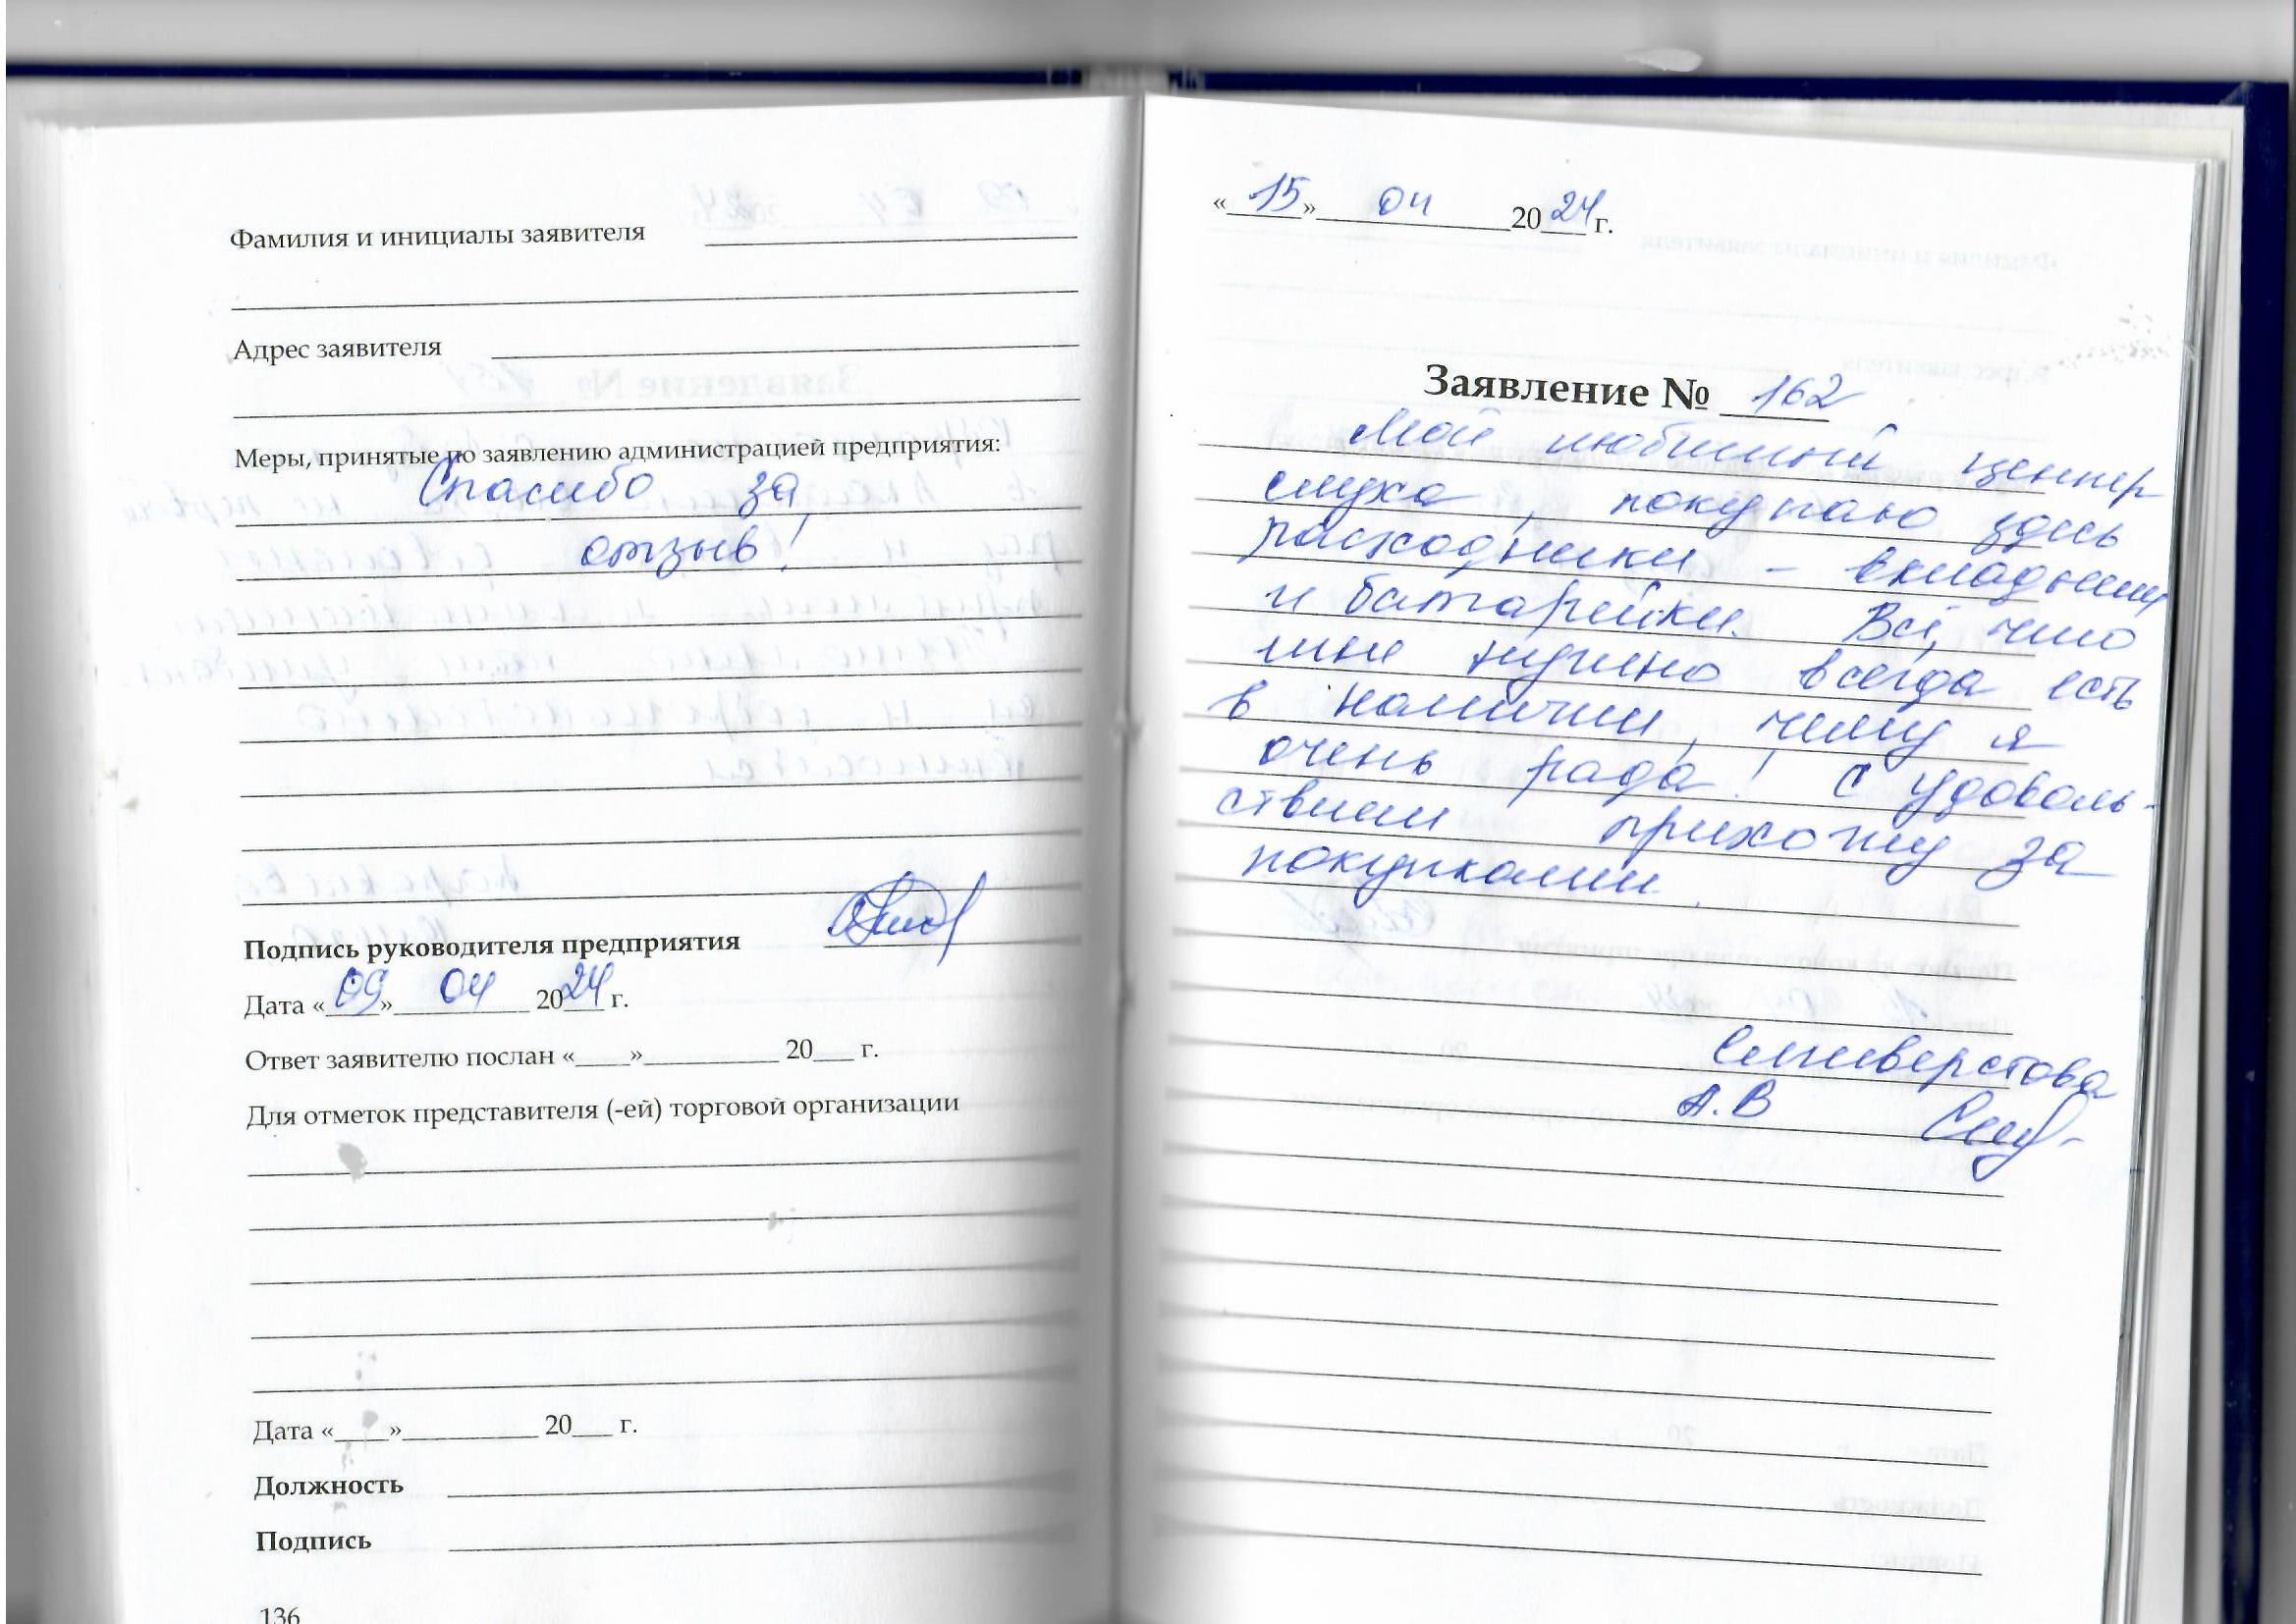 Фамилия и инициалы заявителя
Адрес заявителя
Меры, принятые по заявлению администрацией предприятия:
Спасибо за
отзыв!
Подпись руководителя предприятия
Дата «09» 04 2024 г.
Ответ заявителю послан «____»__________ 20___ г.
Для отметок представителя (-ей) торговой организации
Дата «____»__________ 20___ г.
Должность
Подпись
136
«15» 04 2024 г.
Заявление № 162
Мой любимый центр
слуха, покупаю здесь
расходники - вкладыши
и батарейки. Всё, что
мне нужно всегда есть
в наличии, чему я
очень рада! С удоволь-
ствием прихожу за
покупками.
Селиверстова
А.В